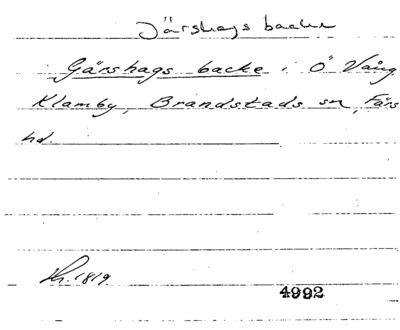 Järshags backe
Gärshags backe i Ö Vång
Klamby, Brandstads sn, Färs
hd.
1819
4992